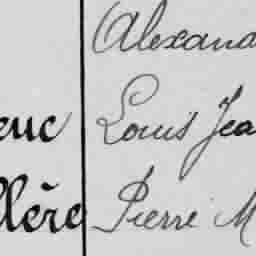 Alexand
euc Louis Jea
llère Pierre M